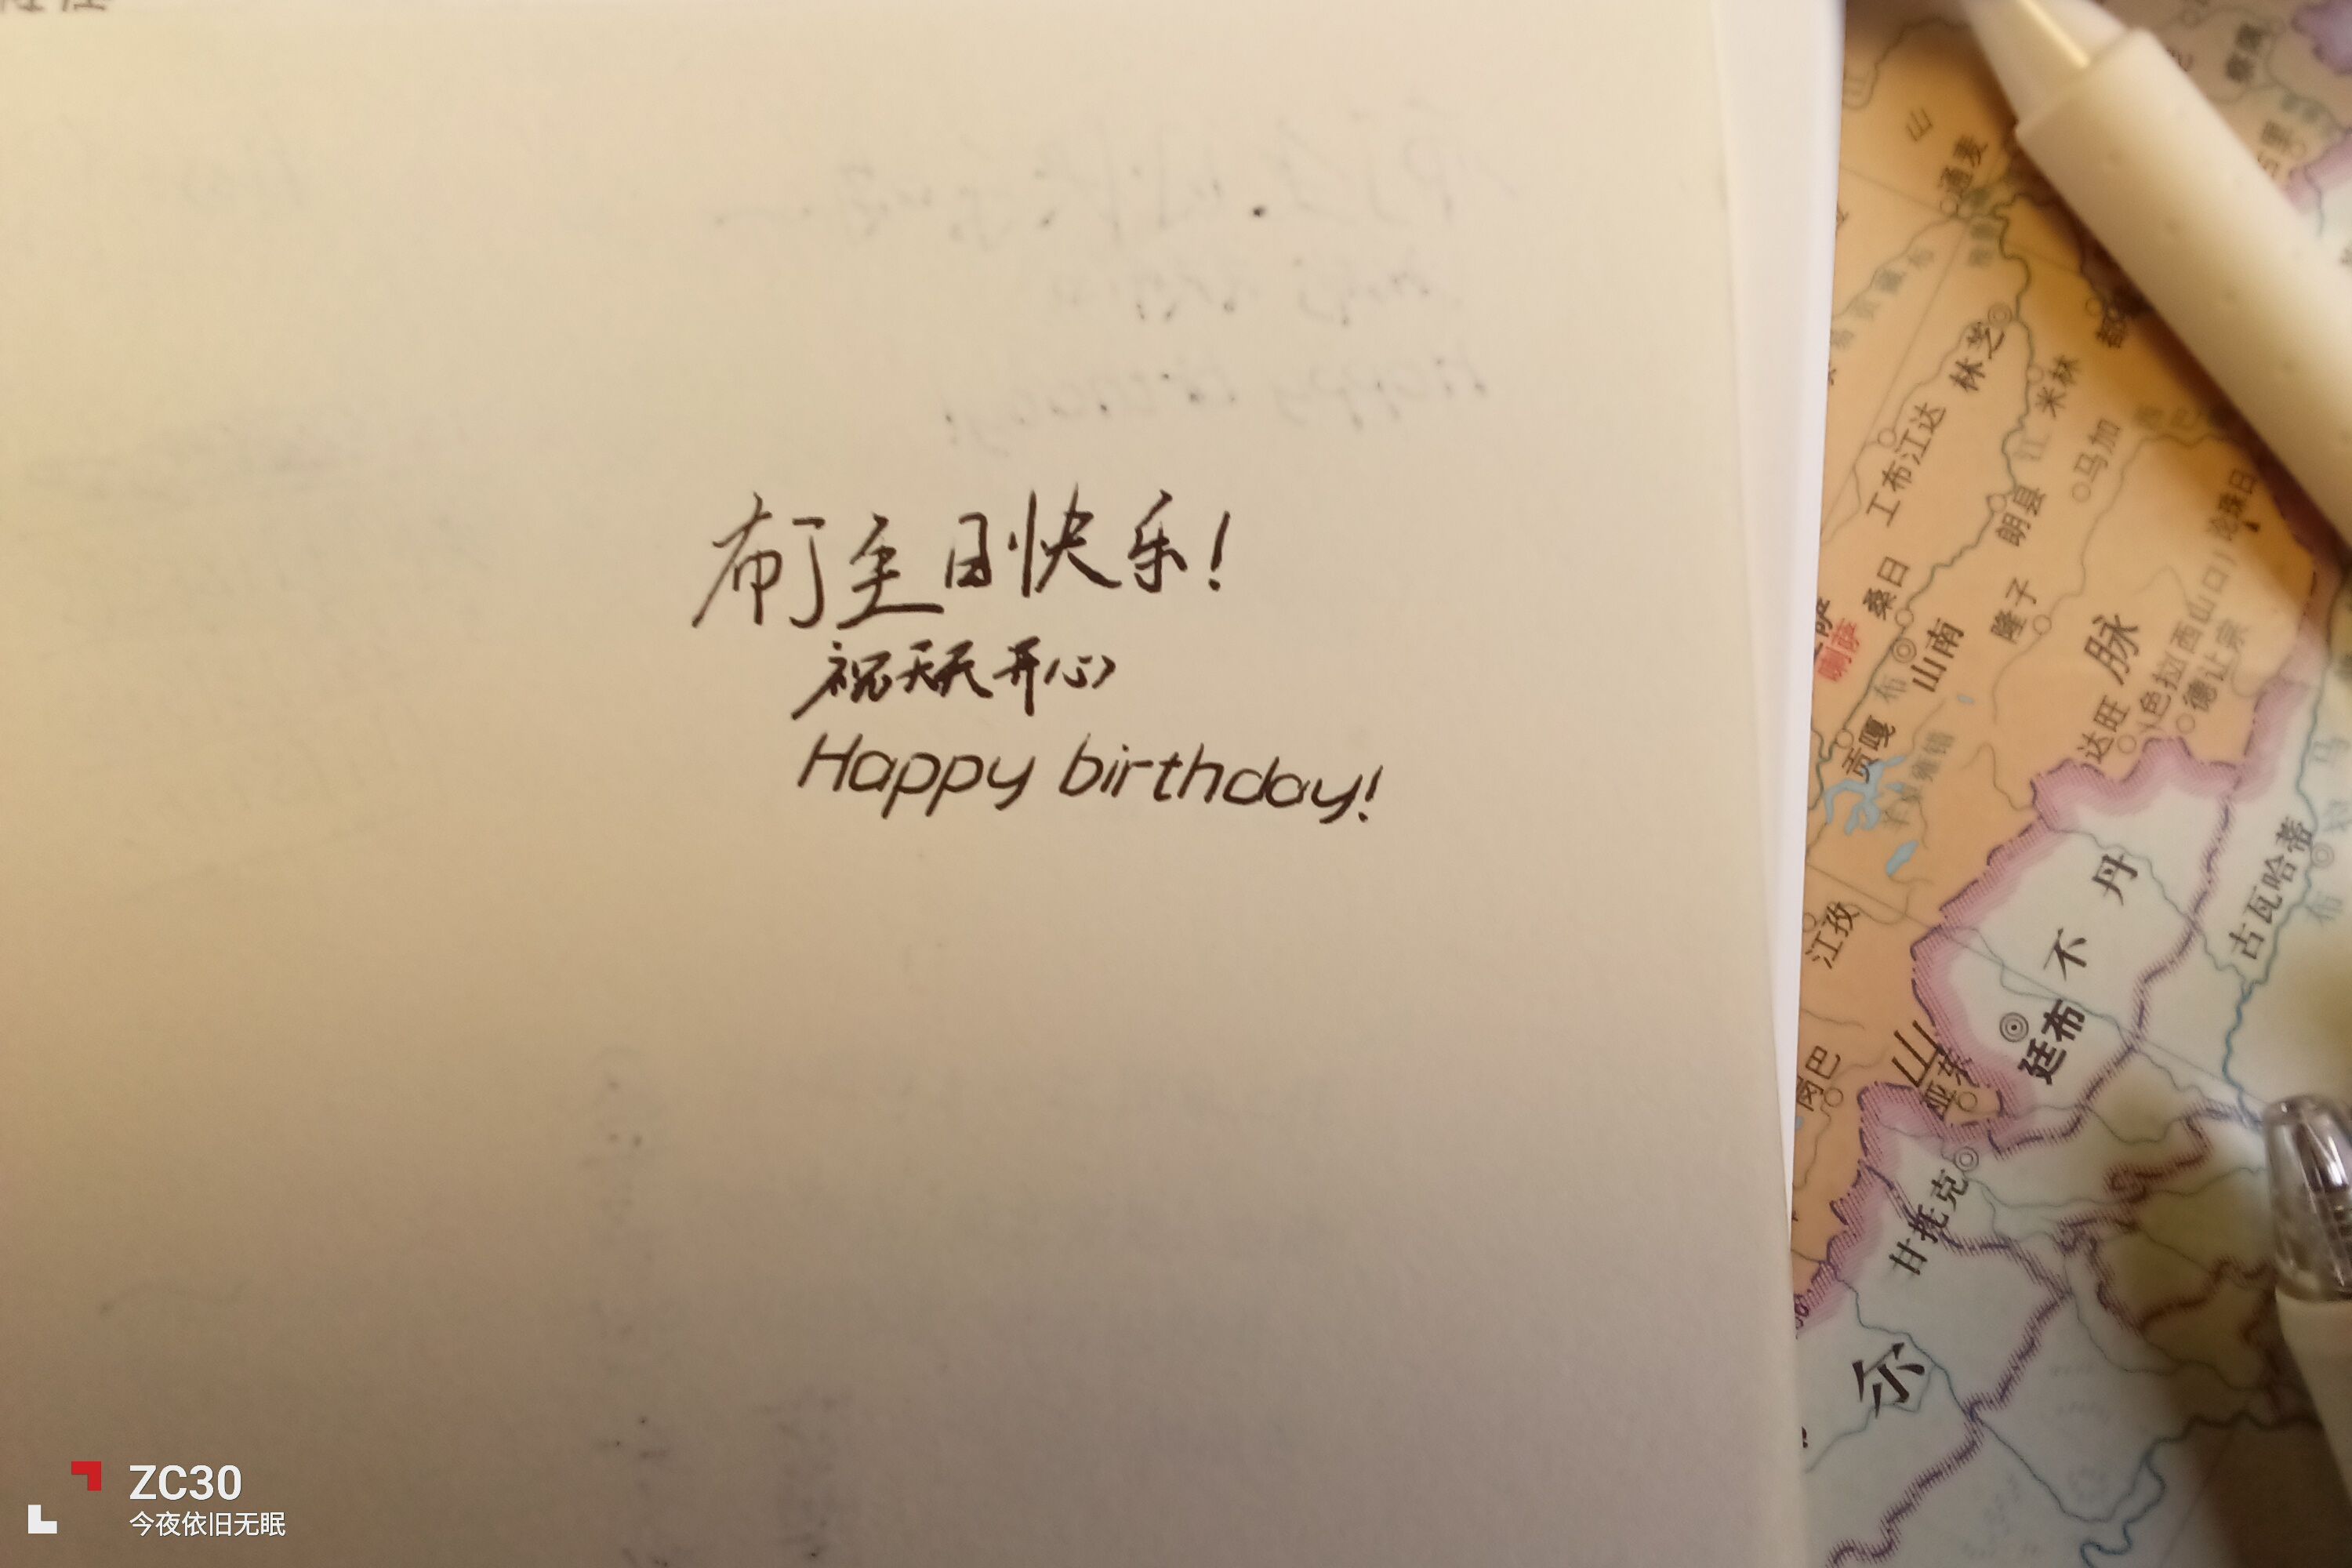 布丁生日快乐!
祝天天开心
Happy birthday!
山
通麦
林芝
米林
工布江达
江
马加
朗县
桑日
隆子
山南
布
脉
贡嘎
达旺
色拉(西山口)
德让宗
江孜
不丹
廷布
古瓦哈蒂
山
亚东
岗巴
甘托克
尔
ZC30
今夜依旧无眠